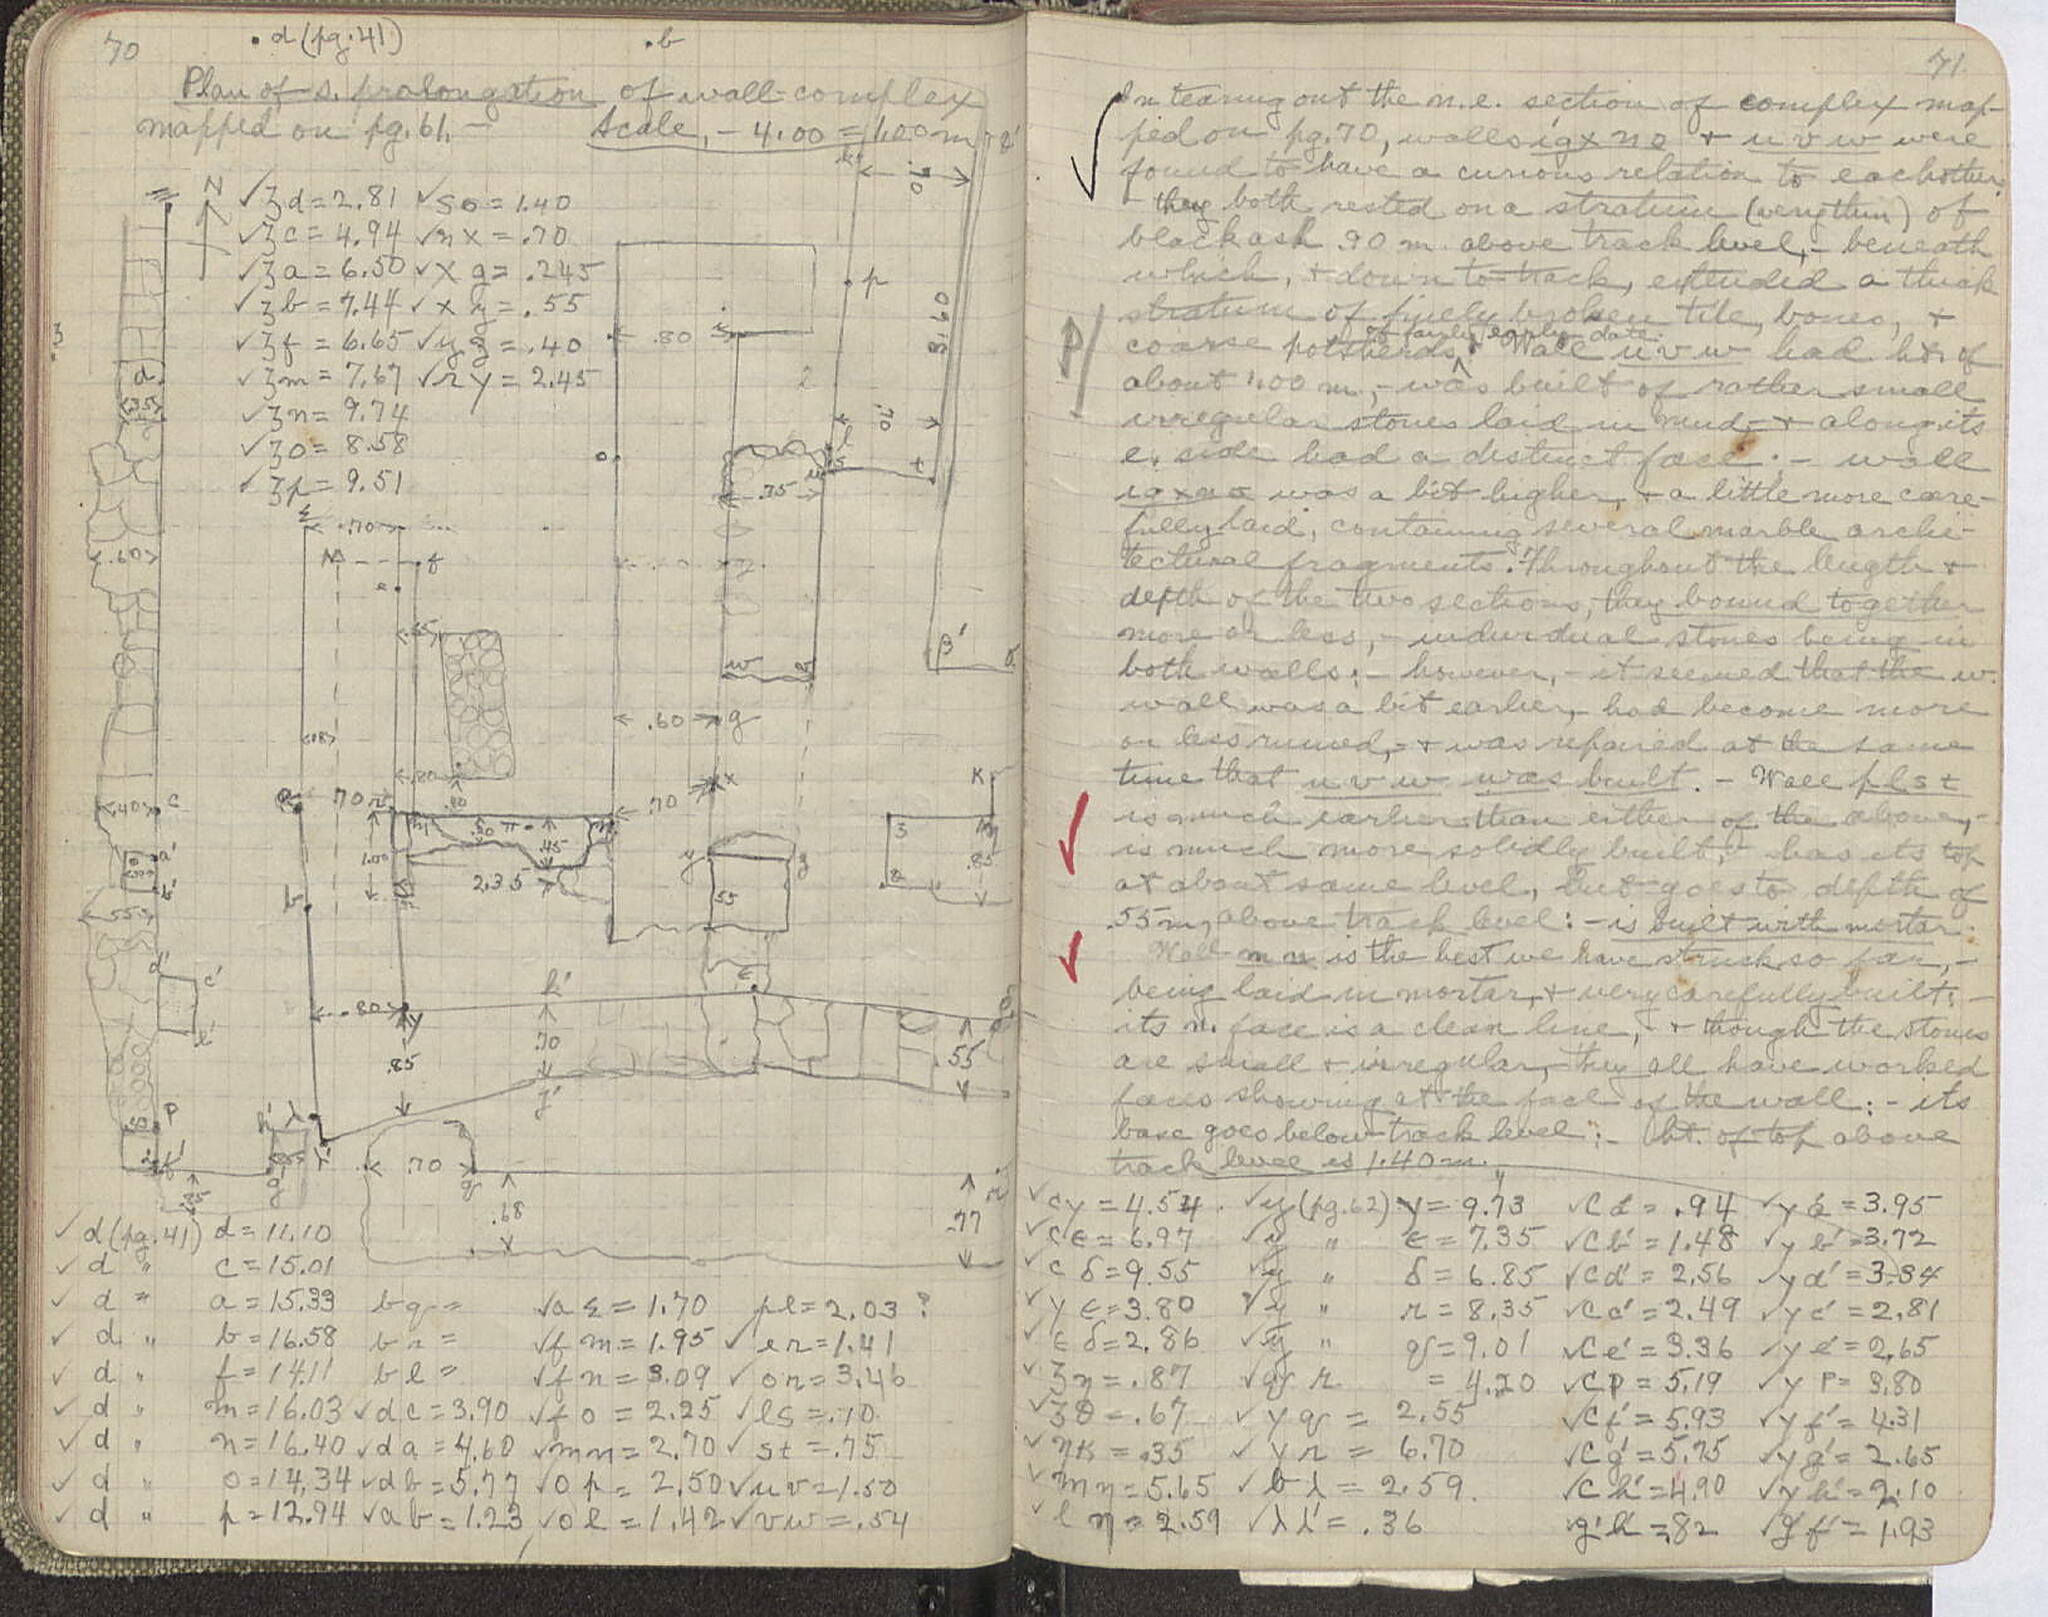 70
. d (pg. 41)
. b
Plan of s. prolongation of wall-complex
mapped on pg. 61. —
Scale, – 4.00 = 1.00 m
N
✓ʒd = 2.81 ✓so = 1.40
✓ʒc = 4.94 ✓nx = .70
✓ʒa = 6.50 ✓xg = .245
✓ʒb = 7.44 ✓xy = .55
✓ʒf = 6.65 ✓yʒ = .40
✓ʒm = 7.67 ✓ry = 2.45
✓ʒn = 9.74
✓ʒo = 8.58
✓ʒp = 9.51
.70
p
.80
.70
.75
.60
.70
.60
g
x
.40
c
.70
.70
1.00
.50
.45
2.35
.55
.85
.80
h'
.70
j'
.85
.55
.70
.68
.77
✓ d (pg. 41) d = 11.10
✓ d " c = 15.01
✓ d " a = 15.33 bq = ✓aε = 1.70 pl = 2.03 ?
✓ d " b = 16.58 br = ✓fm = 1.95 ✓er = 1.41
✓ d " f = 14.11 bl = ✓fn = 3.09 ✓on = 3.46
✓ d " m = 16.03 ✓dc = 3.90 ✓fo = 2.25 ✓ls = .10
✓ d " n = 16.40 ✓da = 4.60 ✓mn = 2.70 ✓st = .75
✓ d " o = 14.34 ✓db = 5.77 ✓op = 2.50 ✓uv = 1.50
✓ d " p = 12.94 ✓ab = 1.23 ✓ol = 1.42 ✓vw = .54
71
In tearing out the n.e. section of complex map-
ped on pg. 70, walls igxno + uvw were
found to have a curious relation to eachother:
– they both rested on a stratum (very thin) of
black ash .90 m above track level, – beneath
which, + down to track, extended a thick
stratum of finely broken tile, bones, +
coarse potsherds of fairly early date. Wall uvw had ht. of
about 1.00 m, – was built of rather small
irregular stones laid in mud, – + along its
e. side had a distinct face: – wall
igxno was a bit higher, + a little more care-
fully laid, containing several marble archi-
tectural fragments. Throughout the length +
depth of the two sections, they bound together
more or less, – individual stones being in
both walls: – however, – it seemed that the w.
wall was a bit earlier, had become more
or less ruined, – + was repaired at the same
time that uvw was built. – Wall plst
is much earlier than either of the above, –
is much more solidly built, has its top
at about same level, but goes to depth of
.55 m, above track level: – is built with mortar.
Wall mn is the best we have struck so far, –
being laid in mortar, + very carefully built: –
its n. face is a clean line, + though the stones
are small + irregular, they all have worked
faces showing at the face of the wall: – its
base goes below track level: – ht. of top above
track level is 1.40 m.
✓cγ = 4.54 ✓y (pg. 62) γ = 9.73 ✓cd = .94 ✓γa = 3.95
✓cε = 6.97 ✓y " ε = 7.35 ✓cb' = 1.48 ✓γb' = 3.72
✓cδ = 9.55 ✓y " δ = 6.85 ✓cd' = 2.56 ✓γd' = 3.34
✓γε = 3.80 ✓y " r = 8.35 ✓cc' = 2.49 ✓γc' = 2.81
✓εδ = 2.86 ✓y " q = 9.01 ✓ce' = 3.36 ✓γe' = 2.65
✓ʒη = .87 ✓qr = 4.20 ✓cP = 5.19 ✓γP = 3.80
✓ʒθ = .67 ✓γq = 2.55 ✓cf' = 5.93 ✓γf' = 4.31
✓ηκ = .35 ✓γr = 6.70 ✓cg' = 5.75 ✓γg' = 2.65
✓mη = 5.65 ✓bλ = 2.59. ✓ch' = 4.90 ✓γh' = 2.10
✓lη = 2.59 ✓λλ' = .36 g'h' = .82 ✓g'f' = 1.93